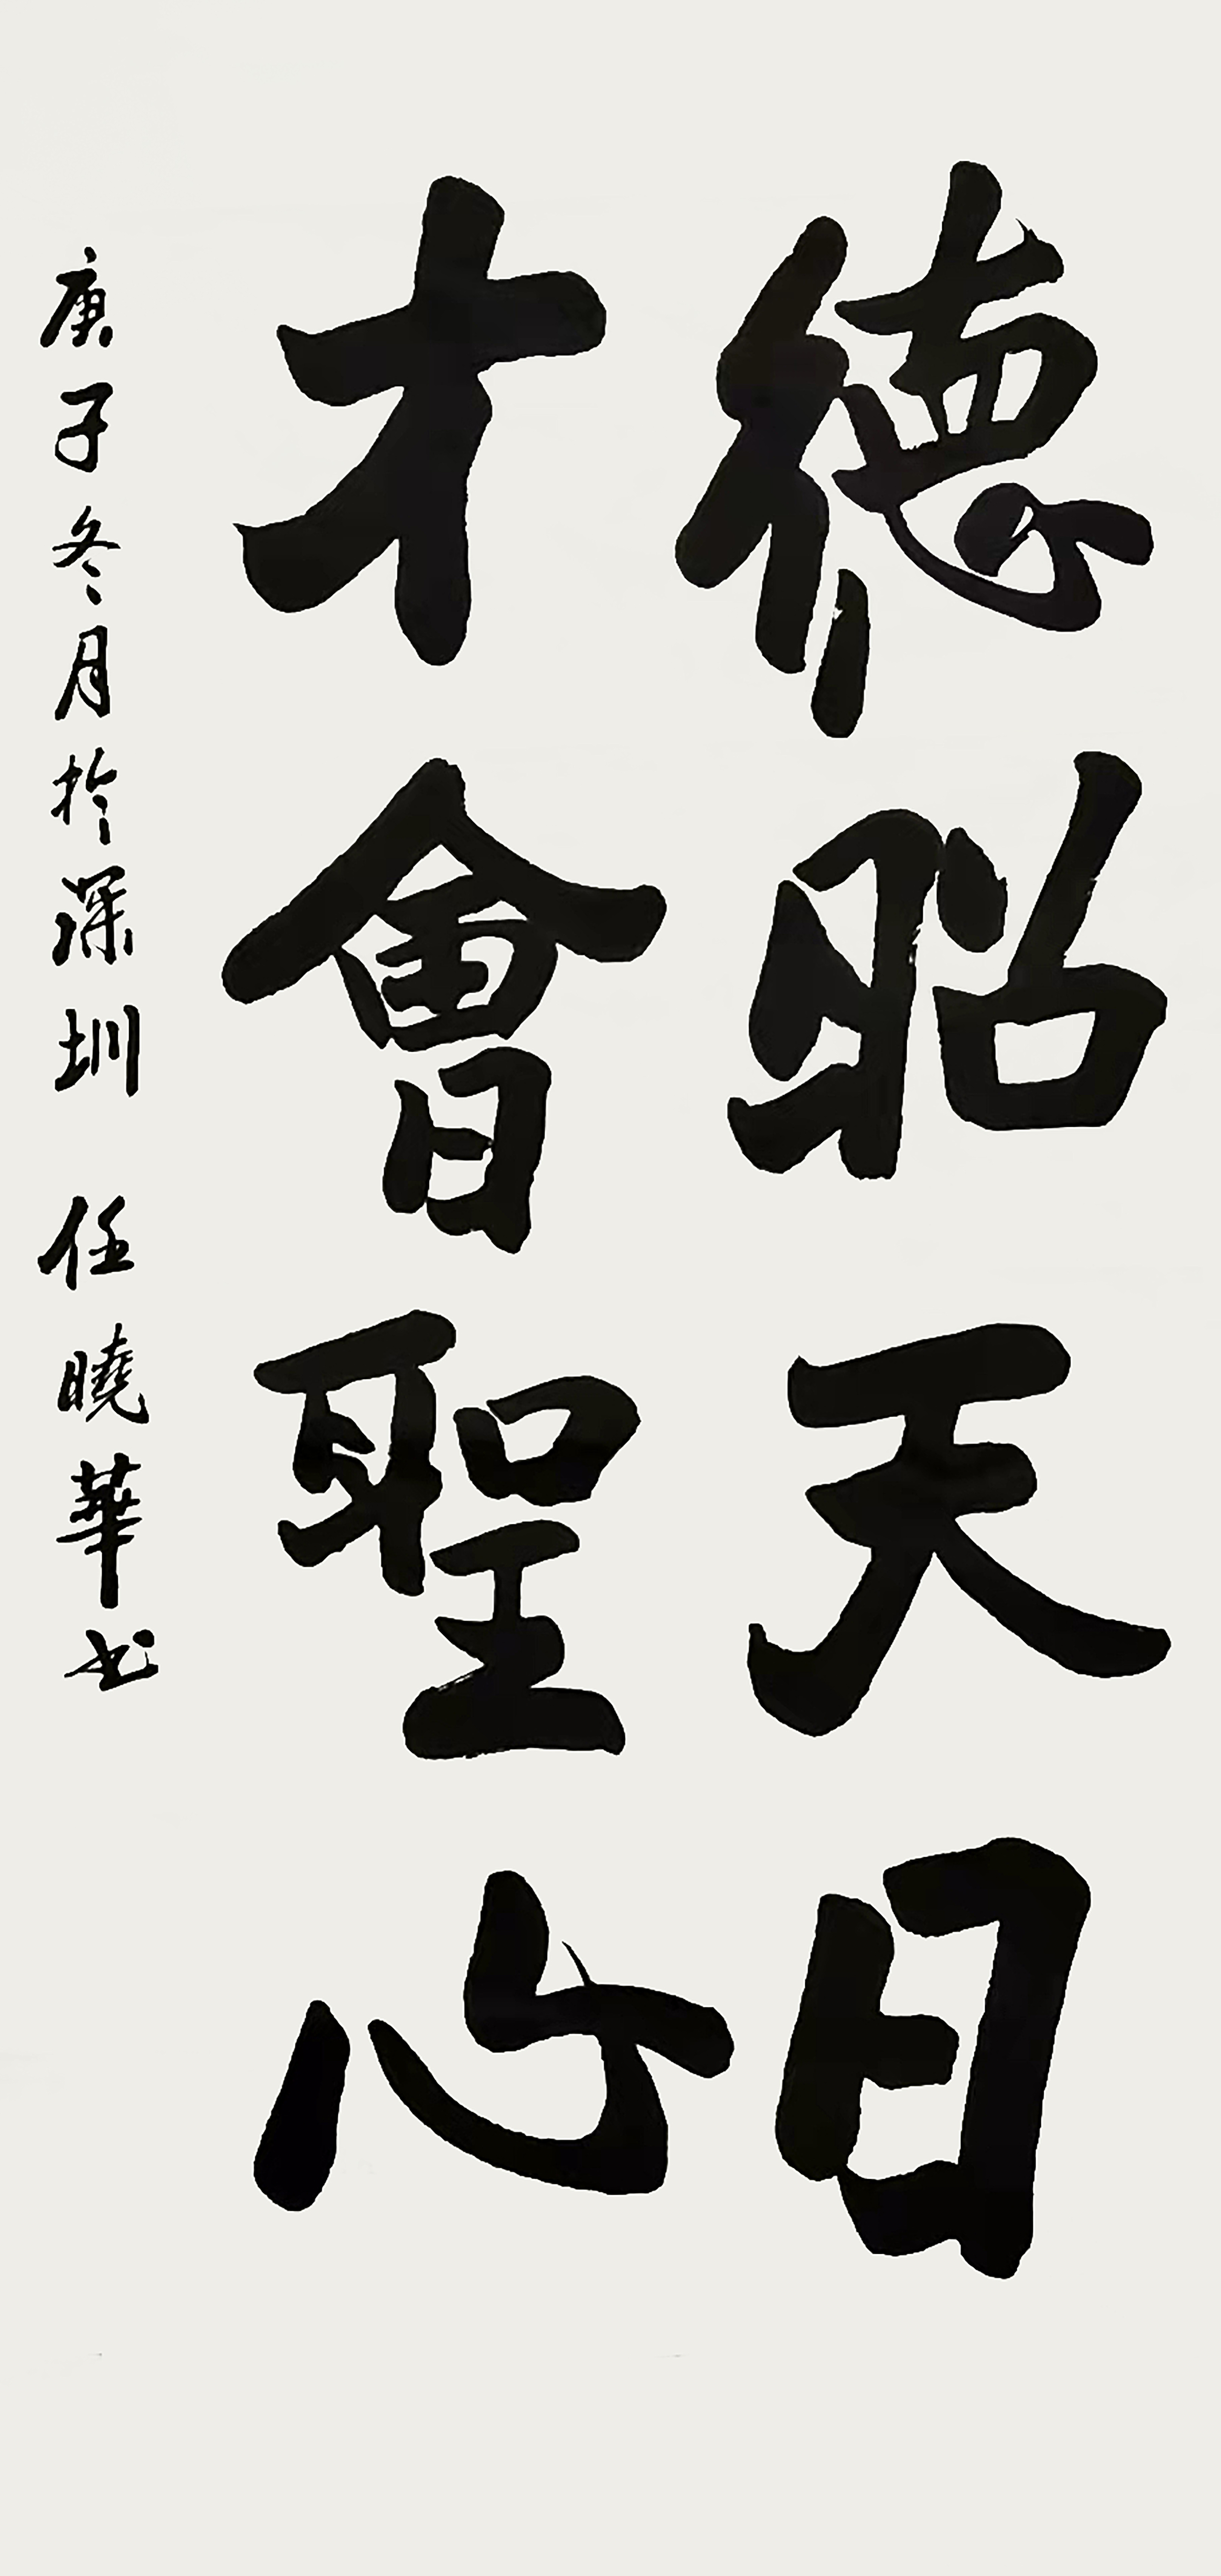 德昭天日
才會聖心
庚子冬月於深圳 任曉華书